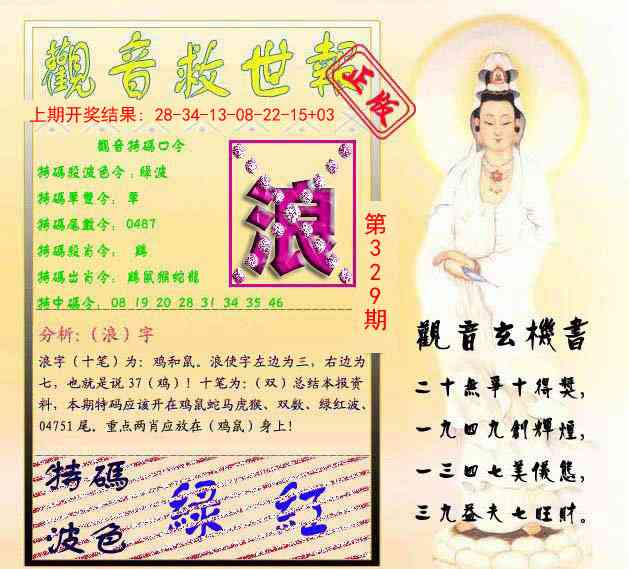 觀音救世報
正版
上期开奖结果：28-34-13-08-22-15+03
觀音特碼口令
特碼段波色令：绿波
特碼單雙令：單
特碼尾數令：0487
特碼段肖令：鷄
特碼出肖令：鷄鼠猴蛇龍
特中碼令：08 19 20 28 31 34 35 46
浪
第329期
分析：（浪）字
浪字（十笔）为：鸡和鼠。浪使字左边为三，右边为
七，也就是说 37（鸡）！十笔为：（双）总结本报资
料，本期特码应该开在鸡鼠蛇马虎猴、双数、绿红波、
04751 尾。重点两肖应放在（鸡鼠）身上！
特碼
波色
綠 紅
觀音玄機書
二十無單十得獎，
一九四九創輝煌，
一三四七美儀態，
三九益夫七旺財。